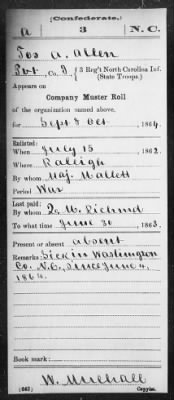 (Confederate.)
A 3 N.C.
Jos A. Allen
Pvt, Co. I, { 3 Reg't North Carolina Inf.
(State Troops.)
Appears on
Company Muster Roll
of the organization named above,
for Sept & Oct, 1864.
Enlisted:
When July 15, 1862.
Where Raleigh
By whom Maj. Mallett
Period War
Last paid:
By whom
To what time June 30, 1863.
Present or absent absent
Remarks: Sick in Washington
Co. N.C. Since June 4,
1864.
Book mark:
(642) Copyist.